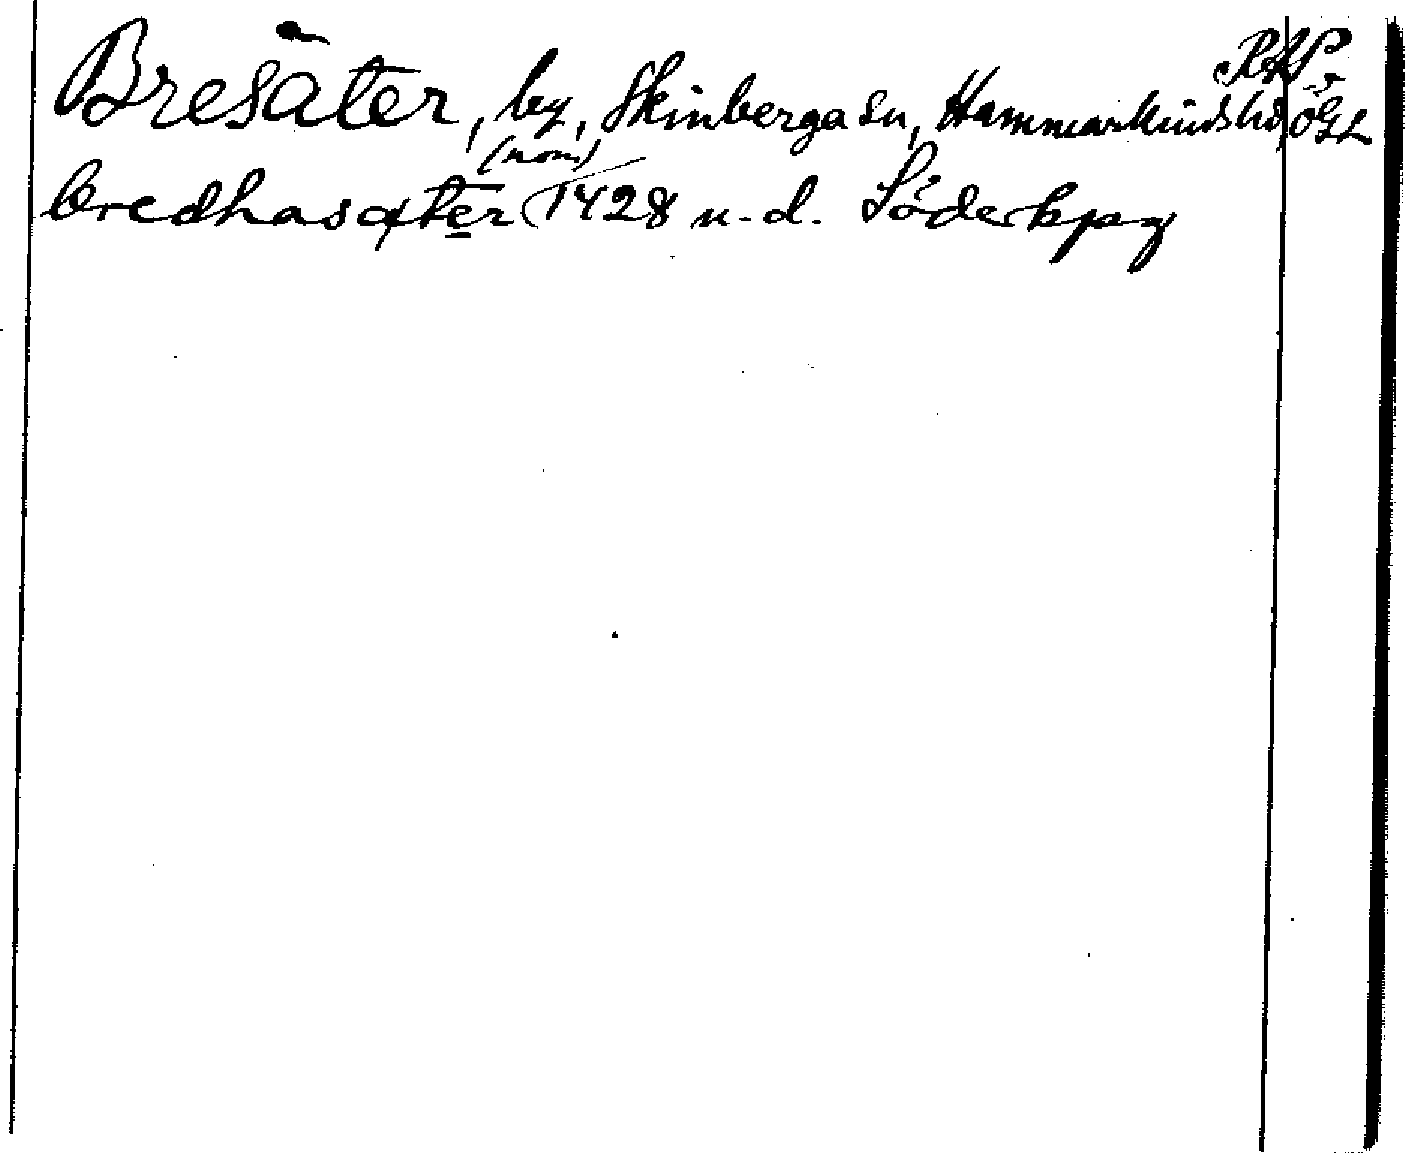 RAP
Bresäter, by, Skinberga sn, Hammarkinds hd, ÖGL
(nom)
bredhasæter 1428 u.d. Söderkpg